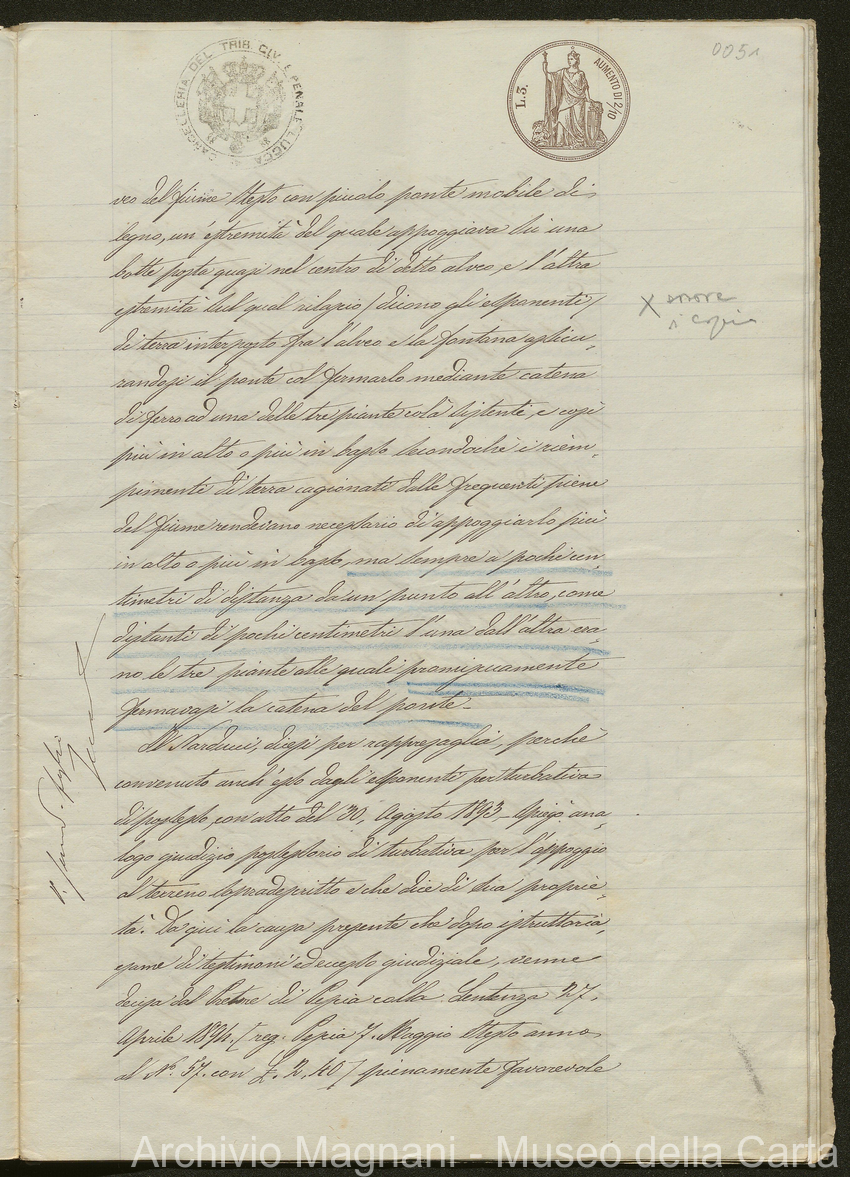 CANCELLERIA DEL TRIB. CIV. E PENALE LUCCA
L.3.
AUMENTO DI 2/10
0051
veo del fiume stesso con piccolo ponte mobile di
legno, un'estremità del quale appoggiava su una
botte posta quasi nel centro di detto alveo, e l'altra
estremità sul qual rilascio (dicono gli esponenti)
di terra interposto fra l'alveo e la fontana assicu-
randosi il ponte col fermarlo mediante catena
di ferro ad una delle tre piante colà esistenti, e così
più in alto o più in basso secondochè i riem-
pimenti di terra cagionati dalle frequenti piene
del fiume rendevano necessario di appoggiarlo più
in alto o più in basso, ma sempre a pochi cen-
timetri di distanza da un punto all'altro, come
distanti di pochi centimetri l'una dall'altra era-
no le tre piante alle quali promiscuamente
fermavasi la catena del ponte.
X errore
di copia
Il Narducci, diesi per rappresaglia, perché
convenuto anch'esso dagli esponenti per turbativa
di possesso, con atto del 30, Agosto 1893, spiegò ana-
logo giudizio possessorio di turbativa per l'appoggio
al terreno sopradescritto e che dice di sua proprie-
tà. Da qui la causa presente che dopo istruttoria,
esame di testimoni ed accesso giudiziale, venne
decisa dal Pretore di Pescia colla Sentenza 27,
Aprile 1894. (reg. Pescia 7. Maggio stesso anno
al N.º 57. con £. 2,40) pienamente favorevole
Archivio Magnani - Museo della Carta